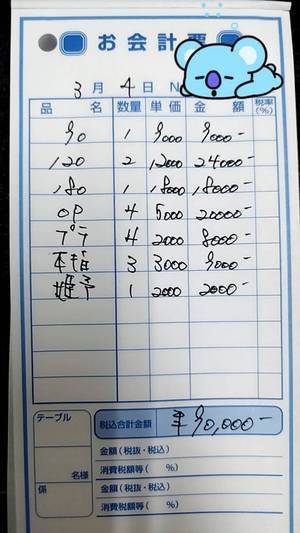 お会計票
3月 4日 N
品名 数量 単価 金額 税率(%)
90 1 9000 9000-
120 2 12000 24000-
180 1 18000 18000-
OP 4 5000 20000-
プラ 4 2000 8000-
本指 3 3000 9000-
姫予 1 2000 2000-
テーブル
税込合計金額 ¥90,000-
名様
金額(税抜・税込)
消費税額等( %)
係
金額(税抜・税込)
消費税額等( %)